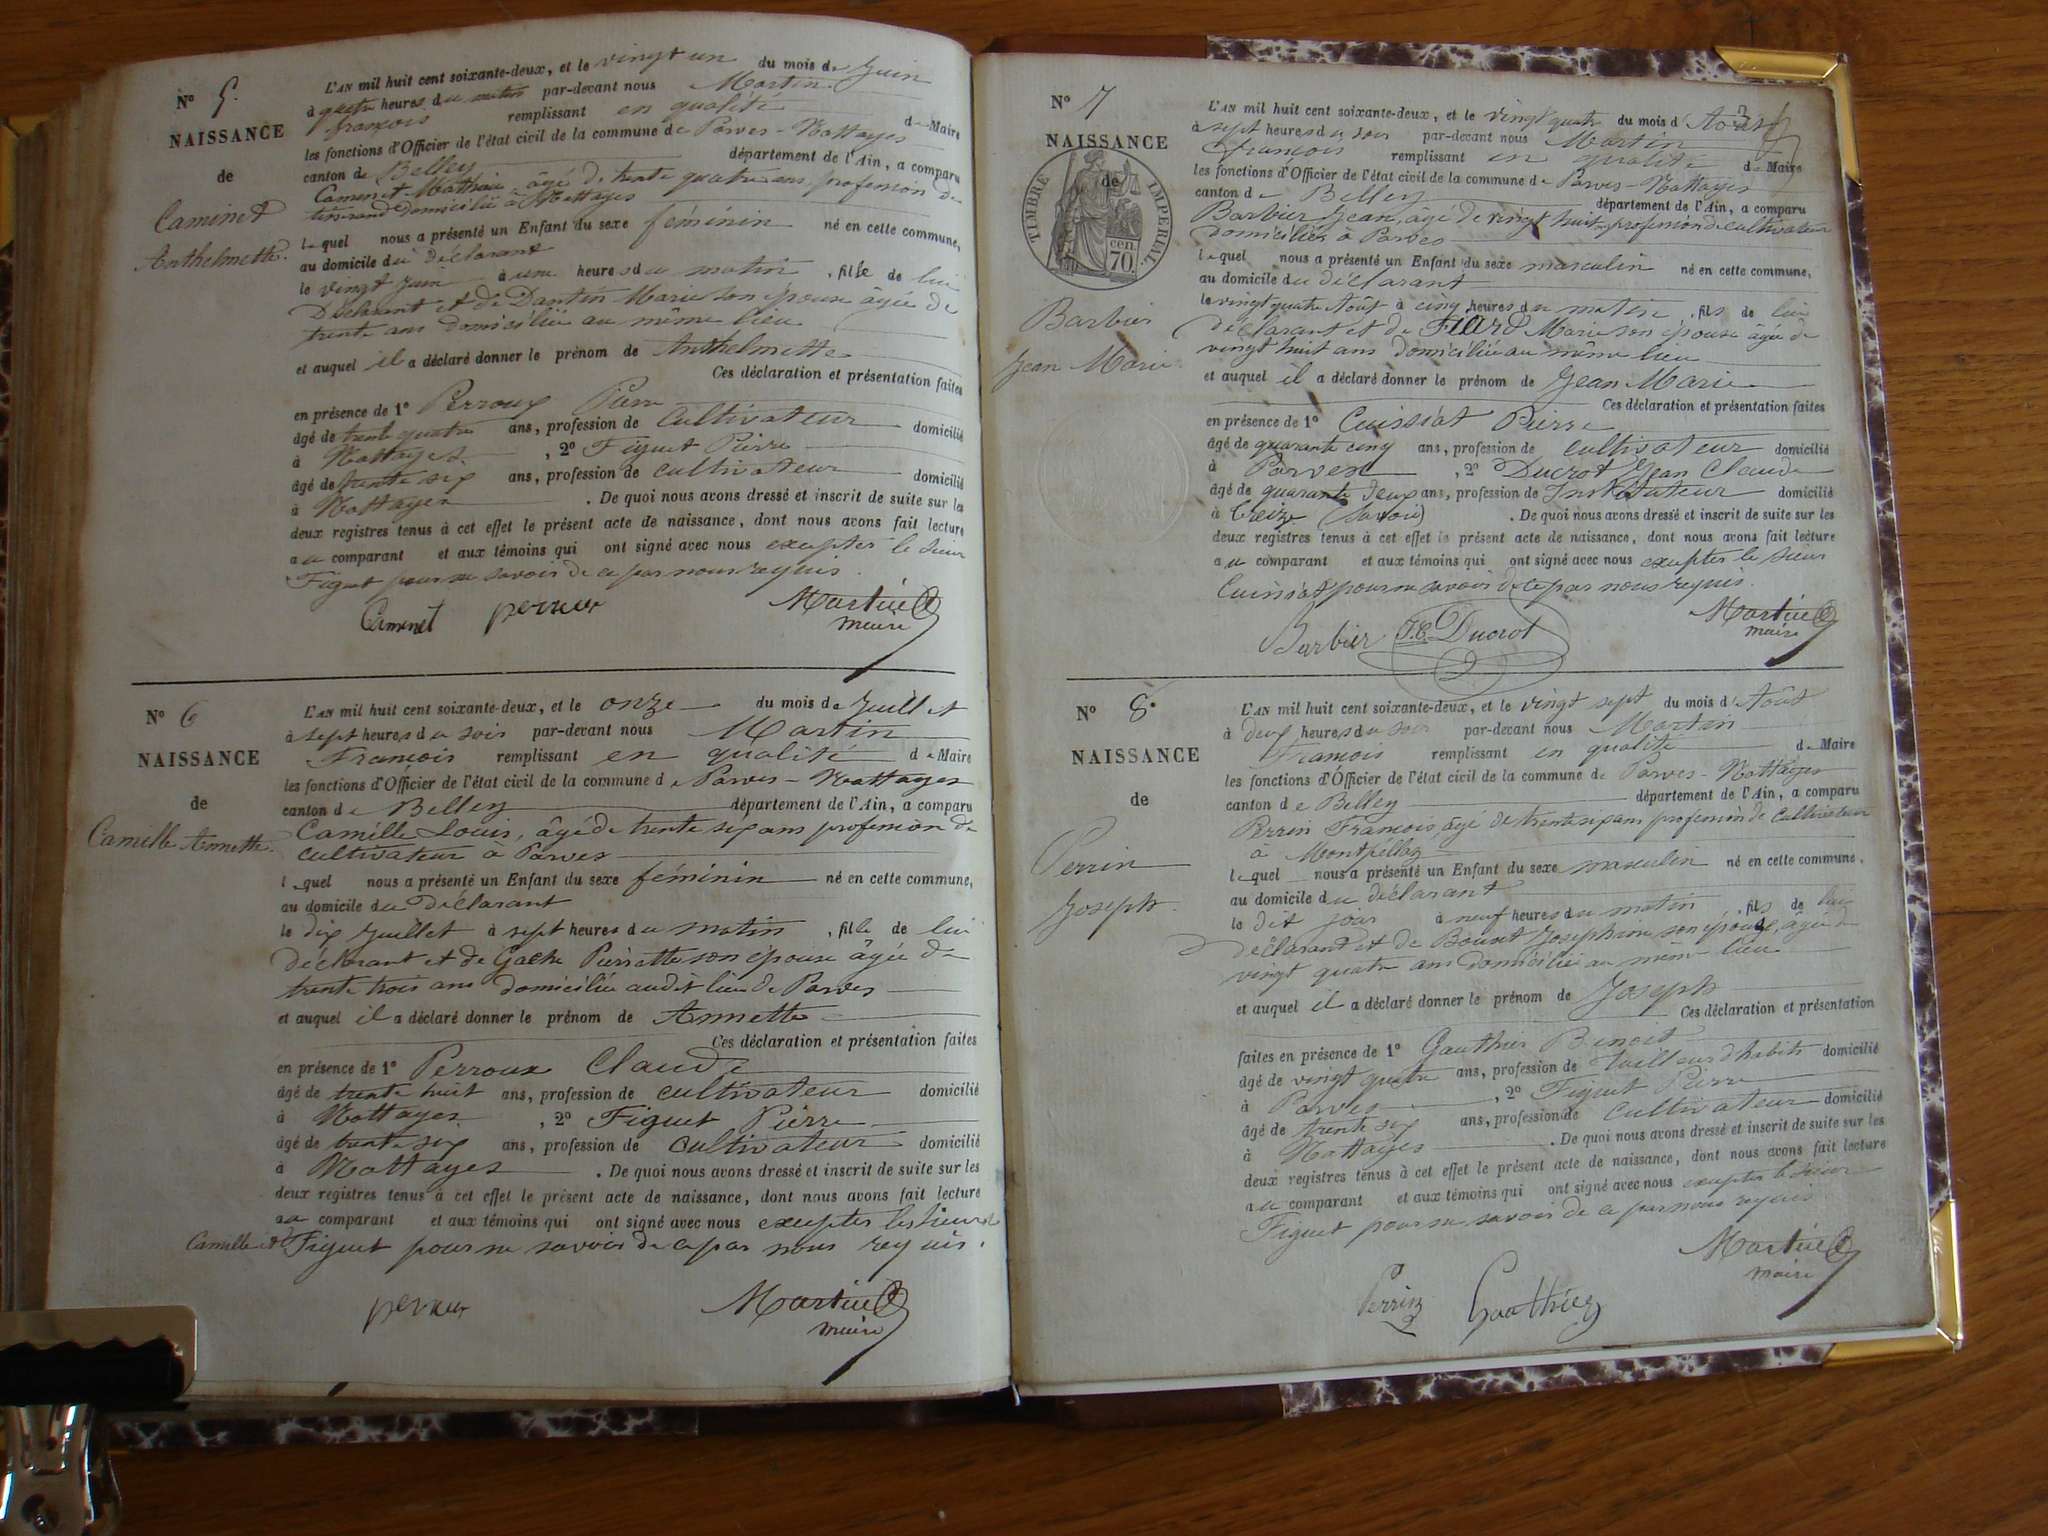 N° 5.
NAISSANCE
de
Caminet
Anthelmette.
L'AN mil huit cent soixante-deux, et le vingt un du mois de Juin
à quatre heures du matin par-devant nous Martin
françois remplissant en qualité de Maire
les fonctions d'Officier de l'état civil de la commune de Parves-Nattages
canton de Belley département de l'Ain, a comparu
Camenet Mathieu âgé de trente quatre ans, profession de
tisserand domicilié à Nattages
lequel nous a présenté un Enfant du sexe féminin né en cette commune,
au domicile du déclarant
le vingt Juin à une heures du matin, fille de lui
Déclarant et de Dantin Marie son épouse âgée de
trente ans domiciliée au même lieu
et auquel il a déclaré donner le prénom de Anthelmette
Ces déclaration et présentation faites
en présence de 1° Perroux Pierre
âgé de trente quatre ans, profession de Cultivateur domicilié
à Nattages, 2° Figuet Pierre
âgé de trente six ans, profession de cultivateur domicilié
à Nattages. De quoi nous avons dressé et inscrit de suite sur les
deux registres tenus à cet effet le présent acte de naissance, dont nous avons fait lecture
au comparant et aux témoins qui ont signé avec nous excepter le sieur
Figuet pour ne savoir de ce par nous requis.
Camenet perroux Martin
maire
N° 6
NAISSANCE
de
Camille Annette.
L'AN mil huit cent soixante-deux, et le onze du mois de Juillet
à sept heures du soir par-devant nous Martin
François remplissant en qualité de Maire
les fonctions d'Officier de l'état civil de la commune de Parves-Nattages
canton de Belley département de l'Ain, a comparu
Camille Louis, âgé de trente six ans profession de
cultivateur à Parves
lequel nous a présenté un Enfant du sexe féminin né en cette commune,
au domicile du Déclarant
le dix Juillet à sept heures du matin, fille de lui
déclarant et de Gache Pierrette son épouse âgée de
trente trois ans domiciliée audit lieu de Parves
et auquel il a déclaré donner le prénom de Annette
Ces déclaration et présentation faites
en présence de 1° Perroux Claude
âgé de trente huit ans, profession de cultivateur domicilié
à Nattages, 2° Figuet Pierre
âgé de trente six ans, profession de cultivateur domicilié
à Nattages. De quoi nous avons dressé et inscrit de suite sur les
deux registres tenus à cet effet le présent acte de naissance, dont nous avons fait lecture
au comparant et aux témoins qui ont signé avec nous excepter les sieurs
Camille et Figuet pour ne savoir de ce par nous requis.
perroux Martin
maire
N° 7
NAISSANCE
de
TIMBRE IMPERIAL.
cen.
70.
Barbier
Jean Marie
L'AN mil huit cent soixante-deux, et le vingt quatre du mois d'Août
à sept heures du soir par-devant nous Martin
François remplissant en qualité de Maire
les fonctions d'Officier de l'état civil de la commune de Parves-Nattages
canton de Belley département de l'Ain, a comparu
Barbier Jean, âgé de vingt huit, profession de cultivateur
domicilié à Parves
lequel nous a présenté un Enfant du sexe masculin né en cette commune,
au domicile du déclarant
le vingt quatre Août à cinq heures du matin, fils de lui
déclarant et de Fiard Marie son épouse âgée de
vingt huit ans domiciliée au même lieu
et auquel il a déclaré donner le prénom de Jean Marie
Ces déclaration et présentation faites
en présence de 1° Cuissat Pierre
âgé de quarante cinq ans, profession de cultivateur domicilié
à Parves, 2° Ducrot Jean Claude
âgé de quarante deux ans, profession de Instituteur domicilié
à (Savoie). De quoi nous avons dressé et inscrit de suite sur les
deux registres tenus à cet effet le présent acte de naissance, dont nous avons fait lecture
au comparant et aux témoins qui ont signé avec nous excepter le sieur
Cuissat pour ne savoir de ce par nous requis.
Barbier J.C. Ducrot Martin
maire
N° 8.
NAISSANCE
de
Perrin
Joseph.
L'AN mil huit cent soixante-deux, et le vingt sept du mois d'Août
à deux heures du soir par-devant nous Martin
François remplissant en qualité de Maire
les fonctions d'Officier de l'état civil de la commune de Parves-Nattages
canton de Belley département de l'Ain, a comparu
Perrin François, âgé de trente six ans profession de Cultivateur
à Montpellaz
lequel nous a présenté un Enfant du sexe masculin né en cette commune,
au domicile du déclarant
le dit jour à neuf heures du matin, fils de lui
déclarant et de Josephine son épouse, âgée de
vingt quatre ans domiciliée au même lieu
et auquel il a déclaré donner le prénom de Joseph
Ces déclaration et présentation
faites en présence de 1° Gauthier Benoit
âgé de vingt quatre ans, profession de tailleur d'habits domicilié
à Parves, 2° Figuet Pierre
âgé de trente six ans, profession de cultivateur domicilié
à Nattages. De quoi nous avons dressé et inscrit de suite sur les
deux registres tenus à cet effet le présent acte de naissance, dont nous avons fait lecture
au comparant et aux témoins qui ont signé avec nous excepter le sieur
Figuet pour ne savoir de ce par nous requis
Perrin Gauthier Martin
maire